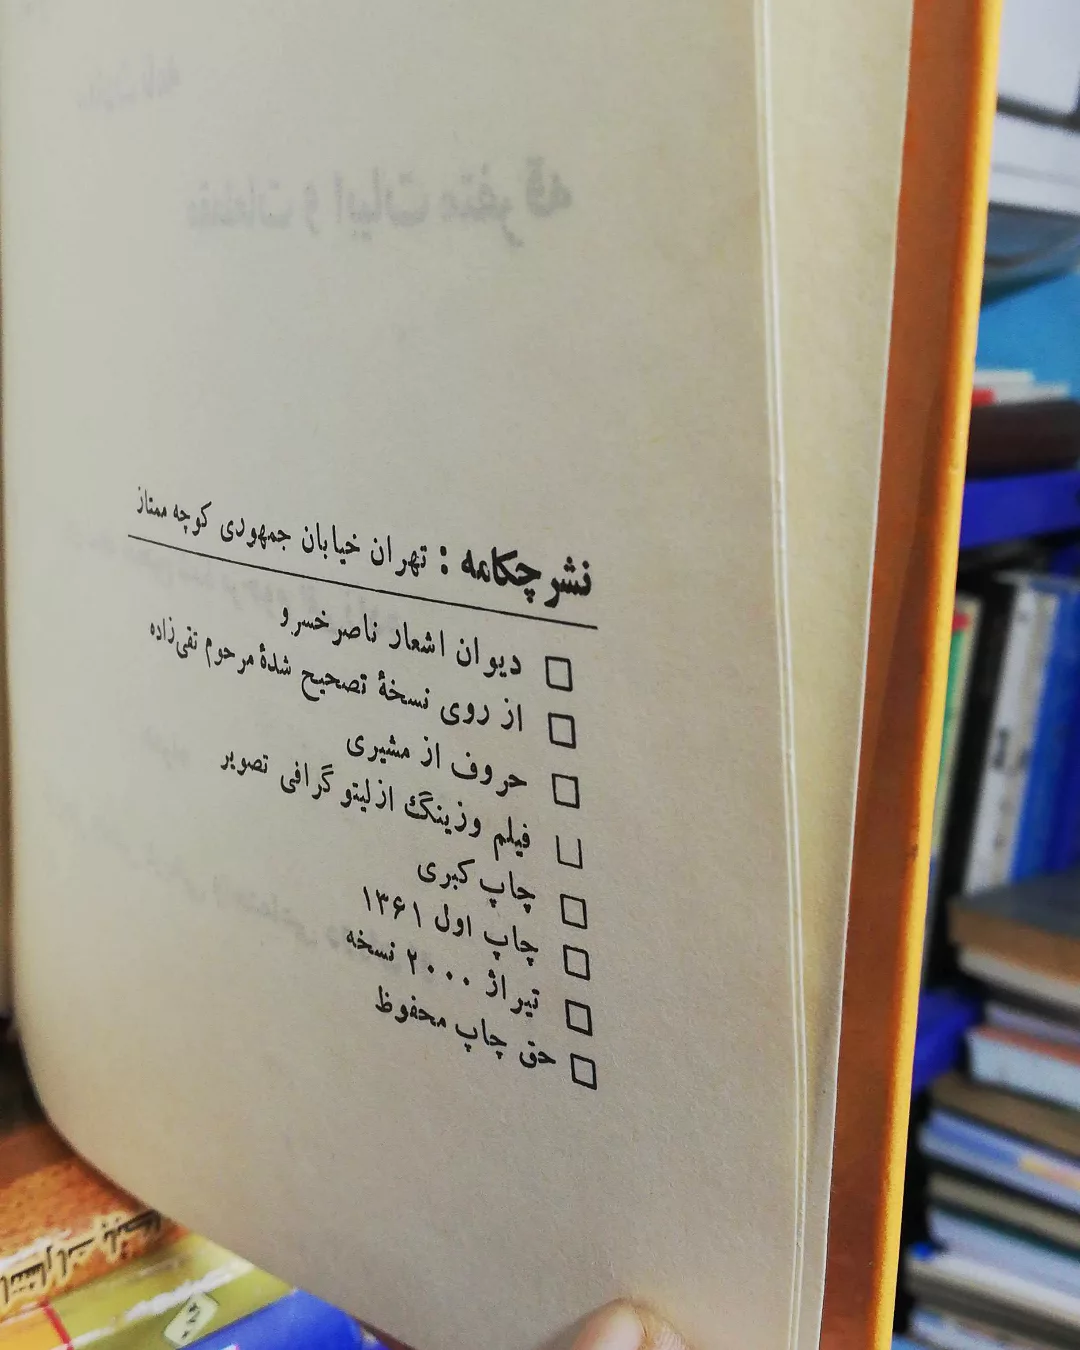 نشر چکامه : تهران خیابان جمهوری کوچه ممتاز
دیوان اشعار ناصر خسرو
از روی نسخهٔ تصحیح شدهٔ مرحوم تقی‌زاده
حروف از مشیری
فیلم و زینگ از لیتو گرافی تصویر
چاپ کبری
چاپ اول ۱۳۶۱
تیراژ ۲۰۰۰ نسخه
حق چاپ محفوظ
مقطعات و ابیات متفرقه
انتشارات